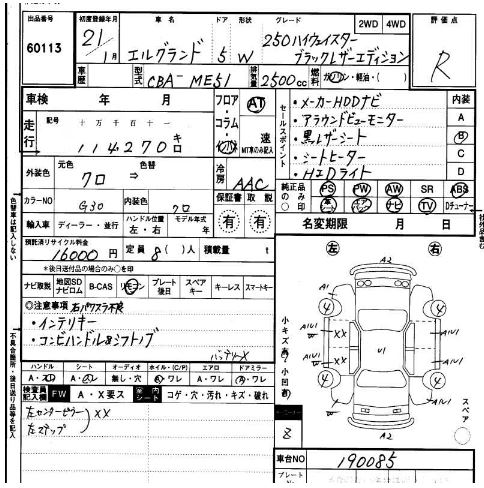 出品番号 初度登録年月 車名 ドア 形状 グレード 2WD 4WD 評価点
60113 21/1月 エルグランド 5 W 250ハイウェイスター
ブラックレザーエディション R
車歴 型式 CBA-ME51 排気量 2500cc 燃料 ガソリン・軽油・( )
車検 年 月 フロア・コラム・ AT 速 MT車のみ記入
走行 記号 十 万 千 百 十 一
114270 キロ
セールスポイント
・メーカーHDDナビ
・アラウンドビューモニター
・黒レザーシート
・シートヒーター
・HIDライト
内装 A B C D
外装色 元色 色替
クロ ⇒
冷房 AAC
カラーNO G30 内装色 クロ
保証書 有 取説 有
純正品のみ○印 PS PW AW SR ABS
ナビ TV Dチューナー
輸入車 ディーラー・並行 ハンドル位置 左・右 モデル年式 年
名変期限 月 日
預託済リサイクル料金 16000円 定員 8( )人 積載量 t
*後日送付品の場合のみ○を印
ナビ取説 地図SD ナビロム B-CAS リモコン プレート後日 スペアキー キーレス スマートキー
◎注意事項 右パワスラ不良
・インテリキー
・コンビハンドル&シフトノブ
バッテリーX
ハンドル シート オーディオ ホイル・(C/P) エアロ ドアミラー
A・ 無し・穴 ワレ A・ワレ ワレ
検査員記入欄 FW A・X要ス 車内シート コゲ・穴・汚れ・キズ・破れ
左センターピラー XX
左ステップ
色替車は記入しない
不具合箇所・後日送付品等を記入
社外品含む
左 右
A2
A1 4 4
A1U1 W XX U1 A1U1
XX W A1U1
4 4 A1U1
A2
小キズ有 小凹有
8
スペア
車台NO 190085
プレートNO